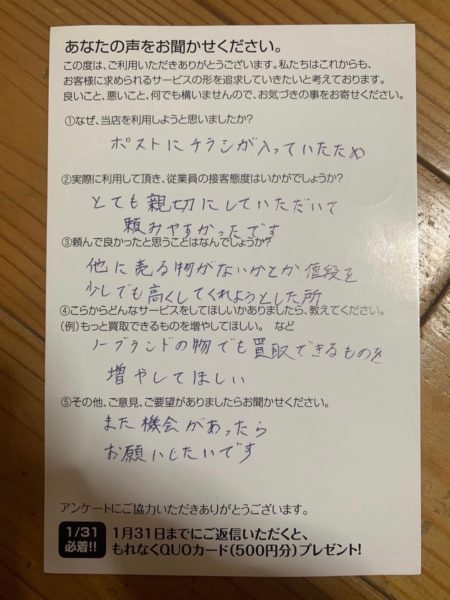 あなたの声をお聞かせください。
この度は、ご利用いただきありがとうございます。私たちはこれからも、
お客様に求められるサービスの形を追求していきたいと考えております。
良いこと、悪いこと、何でも構いませんので、お気づきの事をお寄せください。
①なぜ、当店を利用しようと思いましたか?
ポストにチラシが入っていたため
②実際に利用して頂き、従業員の接客態度はいかがでしょうか?
とても親切にしていただいて
頼みやすかったです
③頼んで良かったと思うことはなんでしょうか?
他に売る物がないかとか値段を
少しでも高くしてくれようとした所
④こらからどんなサービスをしてほしいかありましたら、教えてください。
(例)もっと買取できるものを増やしてほしい。 など
ノーブランドの物でも買取できるものを
増やしてほしい
⑤その他、ご意見、ご要望がありましたらお聞かせください。
また機会があったら
お願いしたいです
アンケートにご協力いただきありがとうございます。
1/31
必着!!
1月31日までにご返信いただくと、
もれなくQUOカード(500円分)プレゼント!